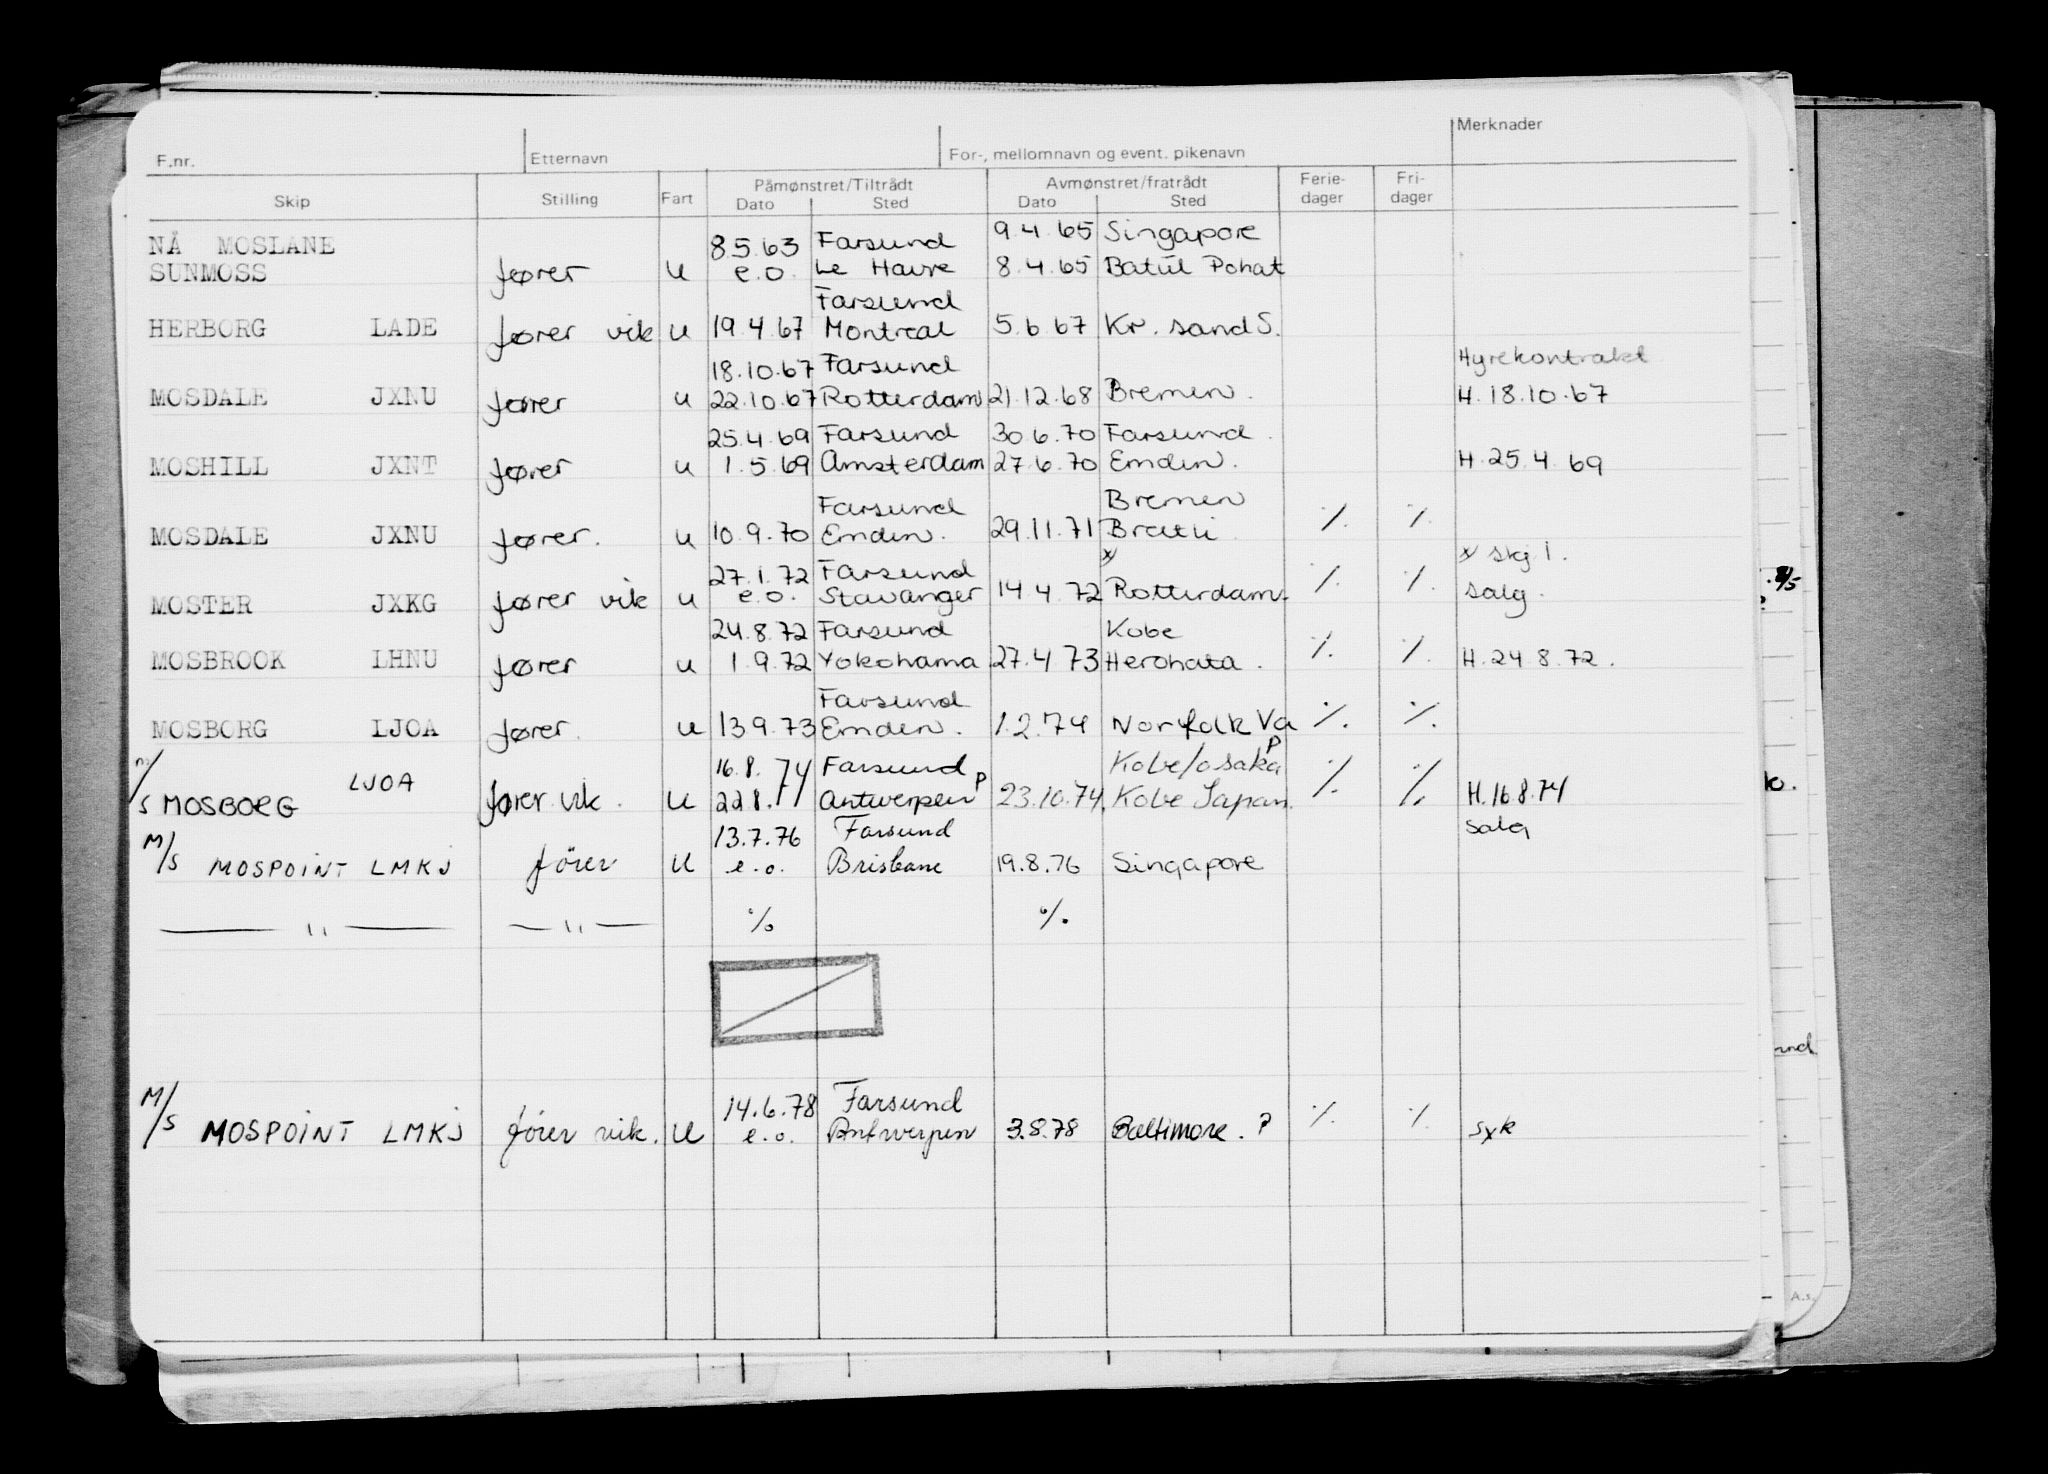 F.nr. Etternavn For-, mellomnavn og event. pikenavn Merknader
Skip Stilling Fart Påmønstret/Tiltrådt Dato Sted Avmønstret/fratrådt Dato Sted Ferie- dager Fri- dager
NÅ MOSLANE 8.5.63 Farsund 9.4.65 Singapore
SUNMOSS fører u e.o. Le Havre 8.4.65 Batu Pahat
Farsund
HERBORG LADE fører vik u 19.4.67 Montreal 5.6.67 Kr. sand S.
18.10.67 Farsund Hyrekontrakt
MOSDALE JXNU fører u 22.10.67 Rotterdam 21.12.68 Bremen. H.18.10.67
25.4.69 Farsund 30.6.70 Farsund.
MOSHILL JXNT fører u 1.5.69 Amsterdam 27.6.70 Emden. H.25.4.69
Farsund Bremen
MOSDALE JXNU fører. u 10.9.70 Emden. 29.11.71 ٪ ٪
27.1.72 Farsund x x skj i.
MOSTER JXKG fører vik u e.o. Stavanger 14.4.72 Rotterdam. ٪ ٪ salg.
24.8.72 Farsund Kobe
MOSBROOK LHNU fører u 1.9.72 Yokohama 27.4.73 Herohata. ٪ ٪ H.24.8.72.
Farsund
MOSBORG LJOA fører. u 13.9.73 Emden. 1.2.74 Norfolk Va ٪ ٪
16.8.74 Farsund Kobe/osaka P
M/S MOSBORG LJOA fører vik. u 22.8.74 Antwerpen P 23.10.74. Kobe Japan. ٪ ٪ H.16.8.74
13.7.76 Farsund salg
M/S MOSPOINT LMKJ fører u e.o. Brisbane 19.8.76 Singapore
— " — — " — ٪ ٪
14.6.78 Farsund
M/S MOSPOINT LMKJ fører vik. u e.o. Antwerpen 3.8.78 Baltimore. P ٪ ٪ syk
A.s.